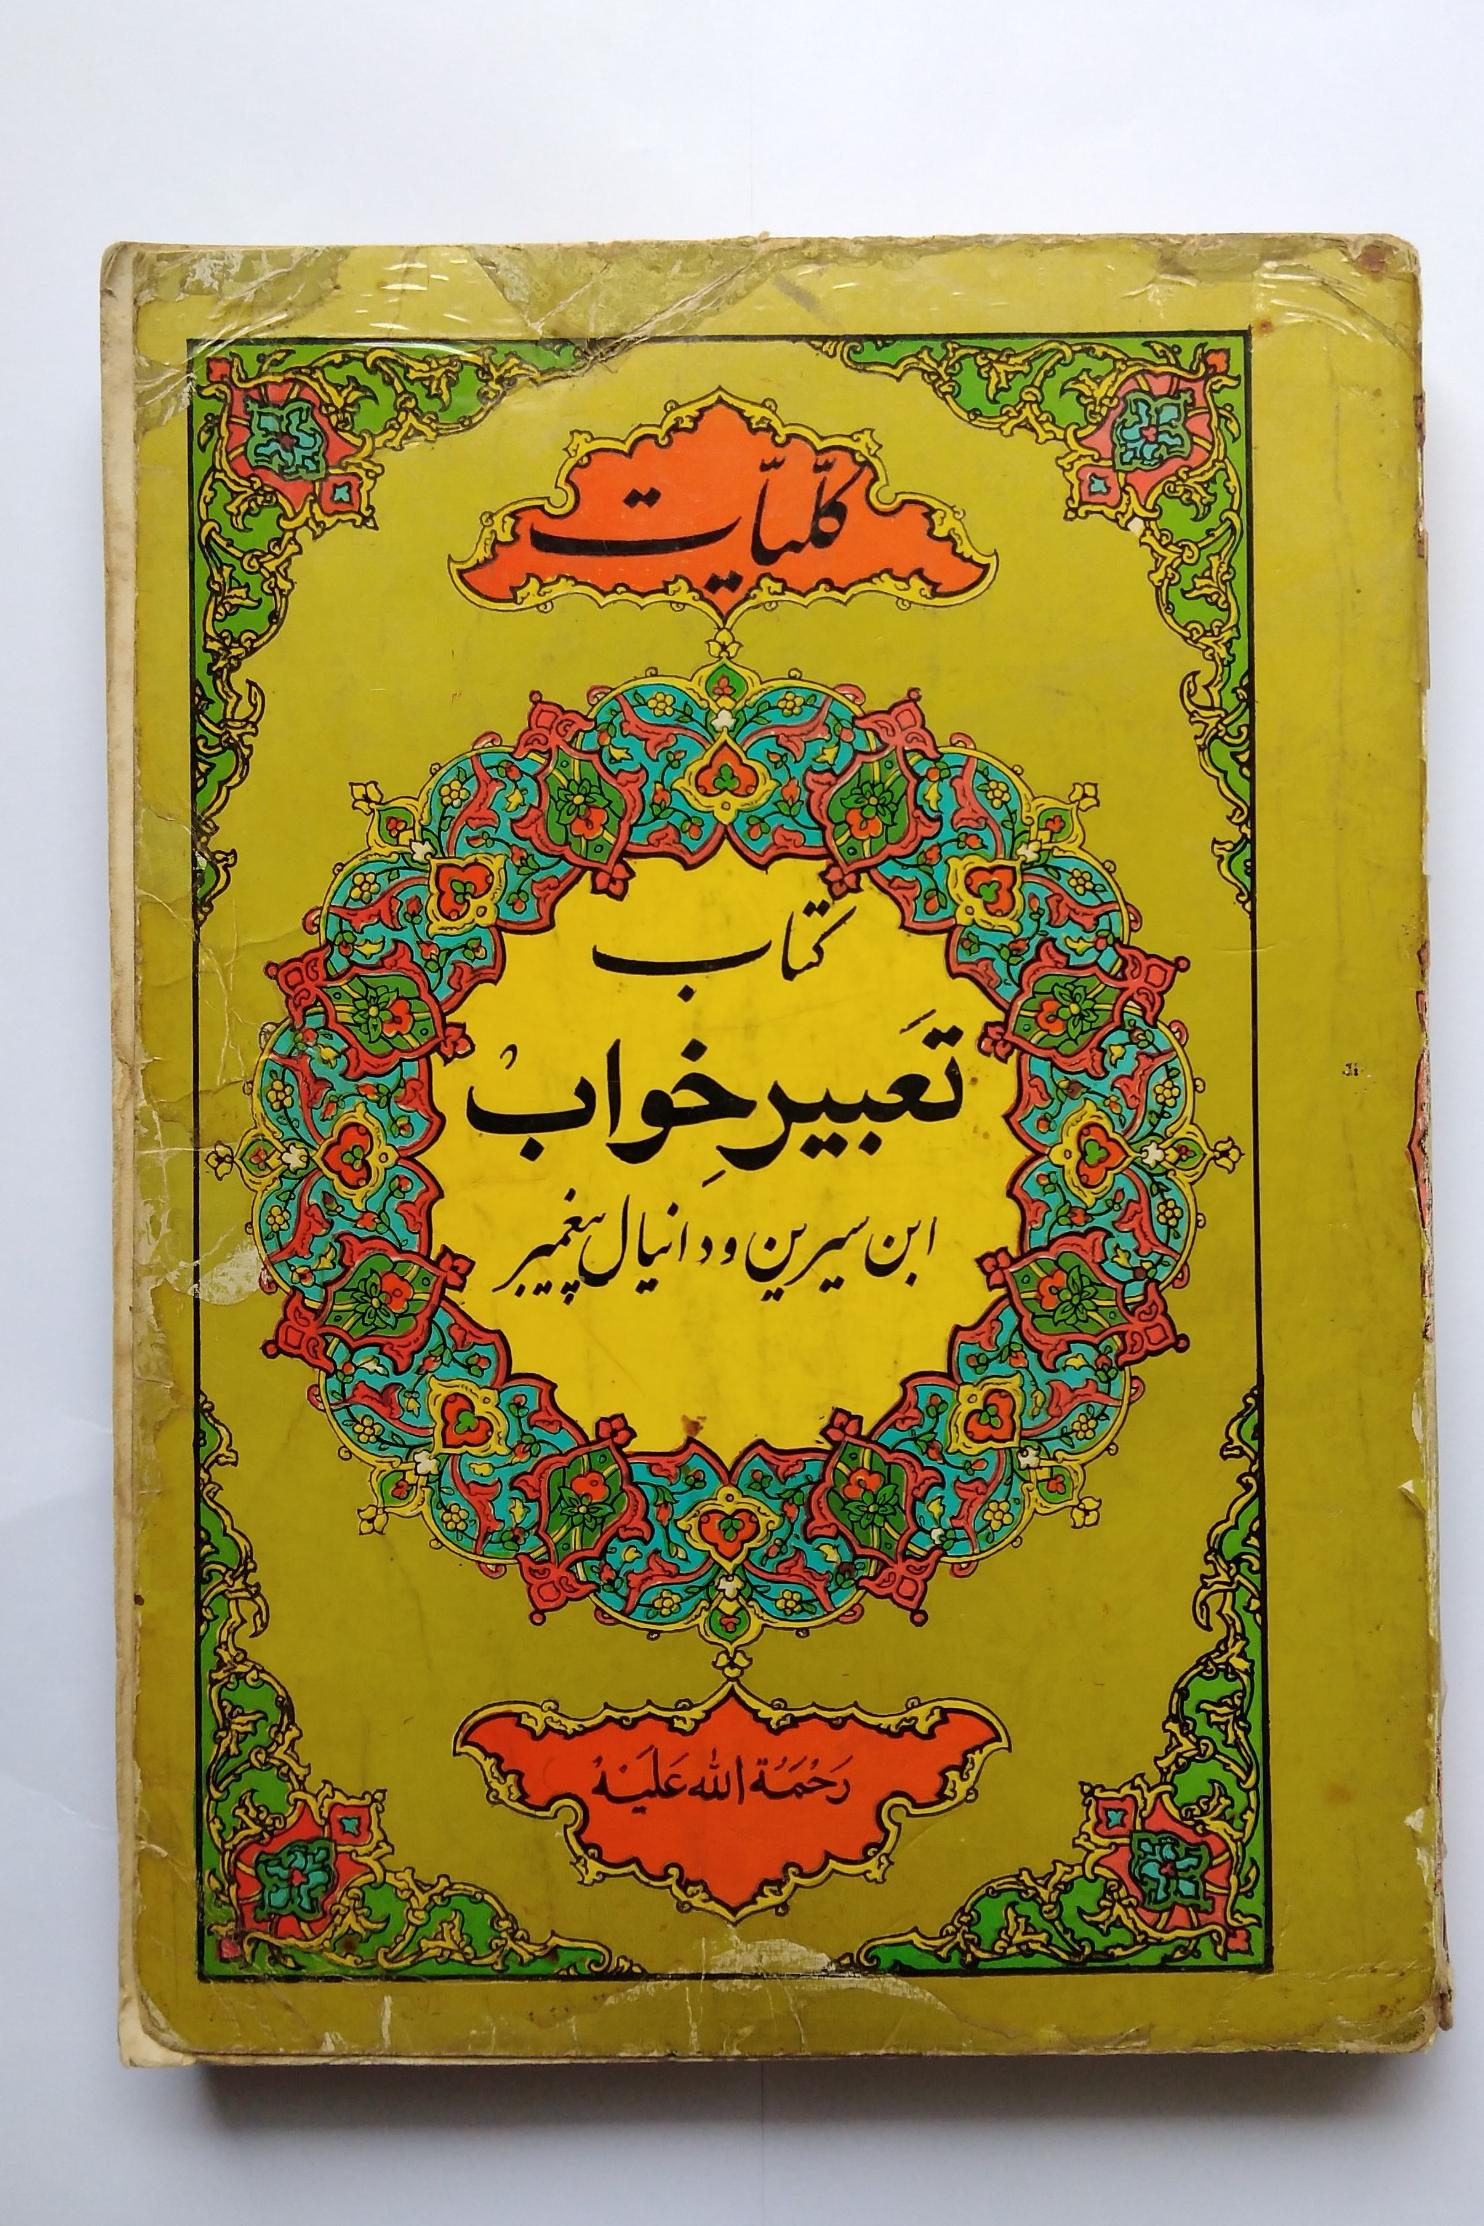 کلّیّات
کتاب
تَعبیر خوِابْ
ابن سیرین و دانیال پیغمبر
رَحْمَةُ الله عَلَیْهُ